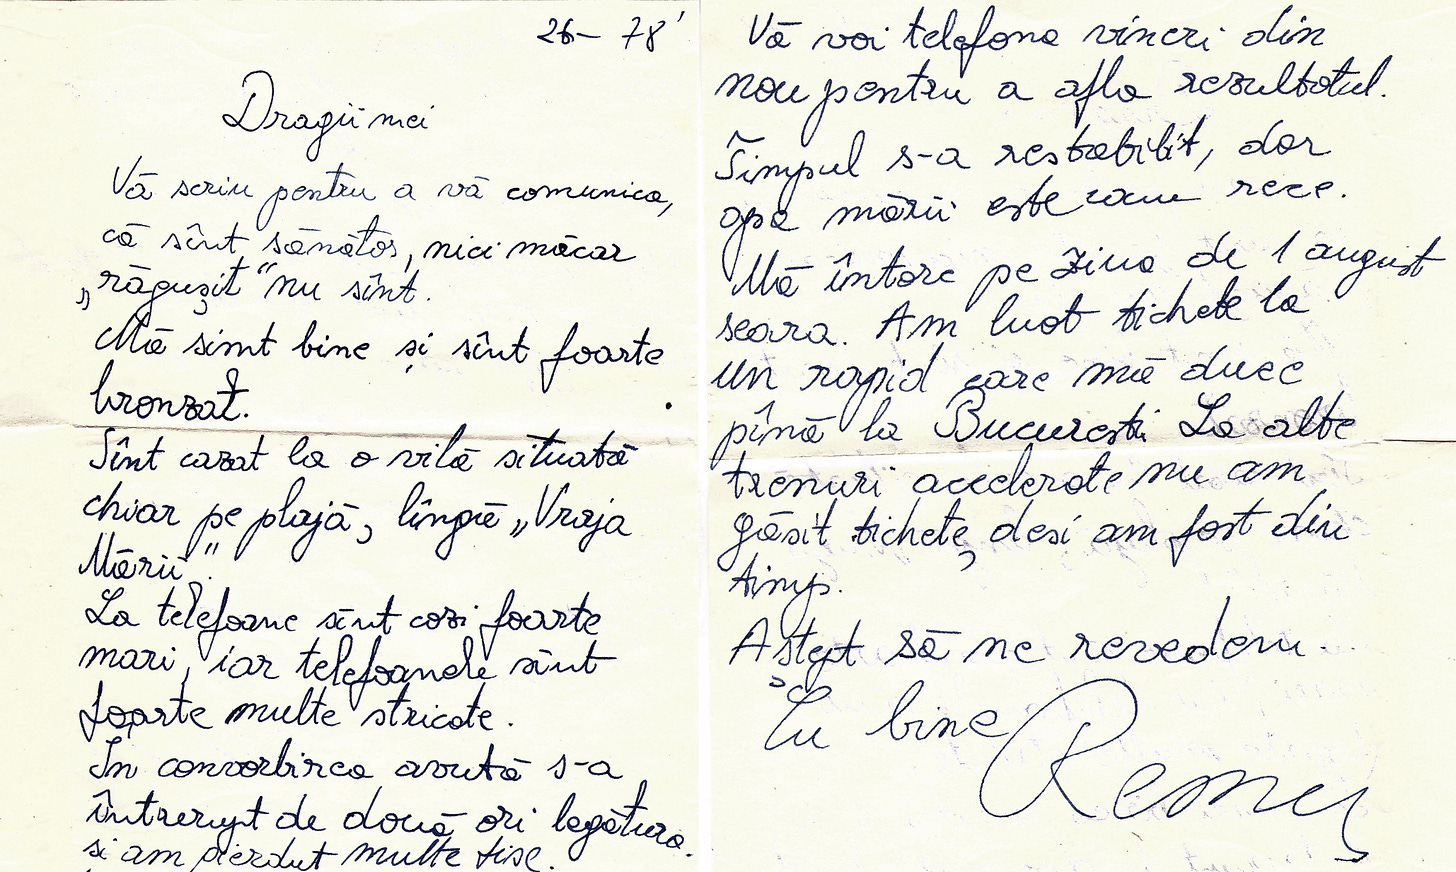 26 – 78'
Dragii mei
Vă scriu pentru a vă comunica,
că sînt sănătos, nici măcar
„răgușit“ nu sînt.
Mă simt bine și sînt foarte
bronzat.
Sînt cazat la o vilă situată
chiar pe plajă, lîngă „Vraja
Mării“.
La telefoane sînt cozi foarte
mari, iar telefoanele sînt
foarte multe stricate.
În convorbirea avută s-a
întrerupt de două ori legătura.
si am pierdut multe fise.
Vă voi telefona vineri din
nou pentru a afla rezultatul.
Timpul s-a restabilit, dar
apa mării este cam rece.
Mă întorc pe ziua de 1 august
seara. Am luat tichete la
un rapid care mă duce
pînă la București La alte
trenuri accelerate nu am
găsit tichete, desi am fost din
timp.
Aștept să ne revedem.
Cu bine Remus